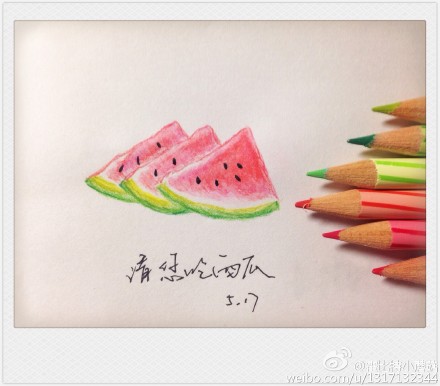 请您吃西瓜
5.17
weibo.com/u/1317132344